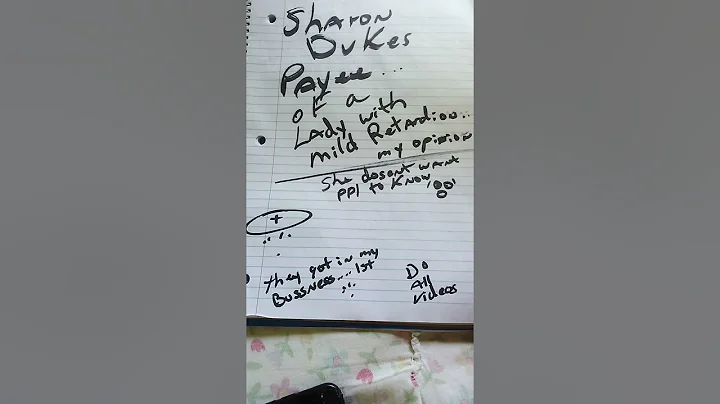 Sharon
Dukes
Payee...
of a
Lady with
mild Retardion...
my opinion
She dosont want
ppl to know
+
they got in my
Bussness.... 1st
Do
All
Videos